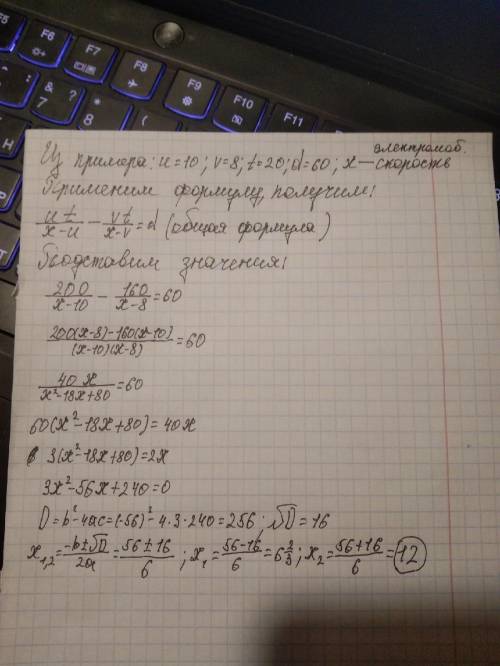 F5
F6
F7
F8
F9
F10
F11
&
7
*
8
электромоб.
Из примера: u=10; v=8; t=20; d=60; x — скорость
Применим формулу, получим:
ut/(x-u) - vt/(x-v) = d (общая формула)
Подставим значения:
200/(x-10) - 160/(x-8) = 60
(200(x-8)-160(x-10))/((x-10)(x-8)) = 60
40x/(x²-18x+80) = 60
60(x²-18x+80)=40x
3(x²-18x+80)=2x
3x²-56x+240=0
D=b²-4ac=(-56)²-4·3·240=256; √D=16
x₁,₂=(-b±√D)/2a=(56±16)/6; x₁=(56-16)/6=6 2/3; x₂=(56+16)/6=12